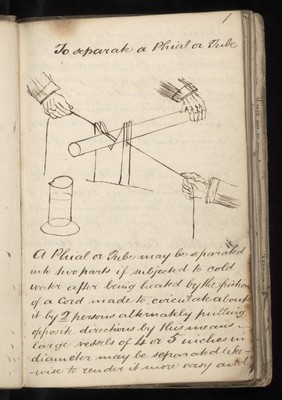 1
To separate a Phial or Tube
A Phial or Tube may be separated
into two parts if subjected to cold
water after being heated by the friction
of a Cord made to circulate about
it by 2 persons alternately pulling
opposite directions by this means
large vessels of 4 or 5 inches in
diameter may be separated like-
-wise to render it more easy